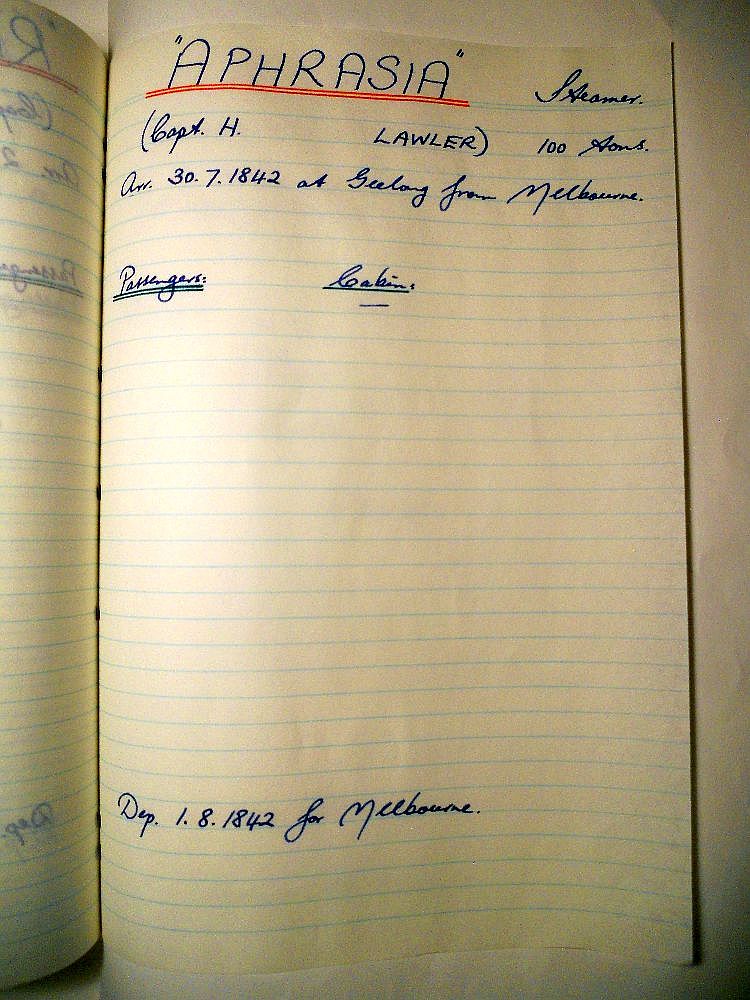 "APHRASIA" Steamer.
(Capt. H. LAWLER) 100 Tons.
Arr. 30.7.1842 at Geelong from Melbourne.
Passengers: Cabin:
—
Dep. 1.8.1842 for Melbourne.